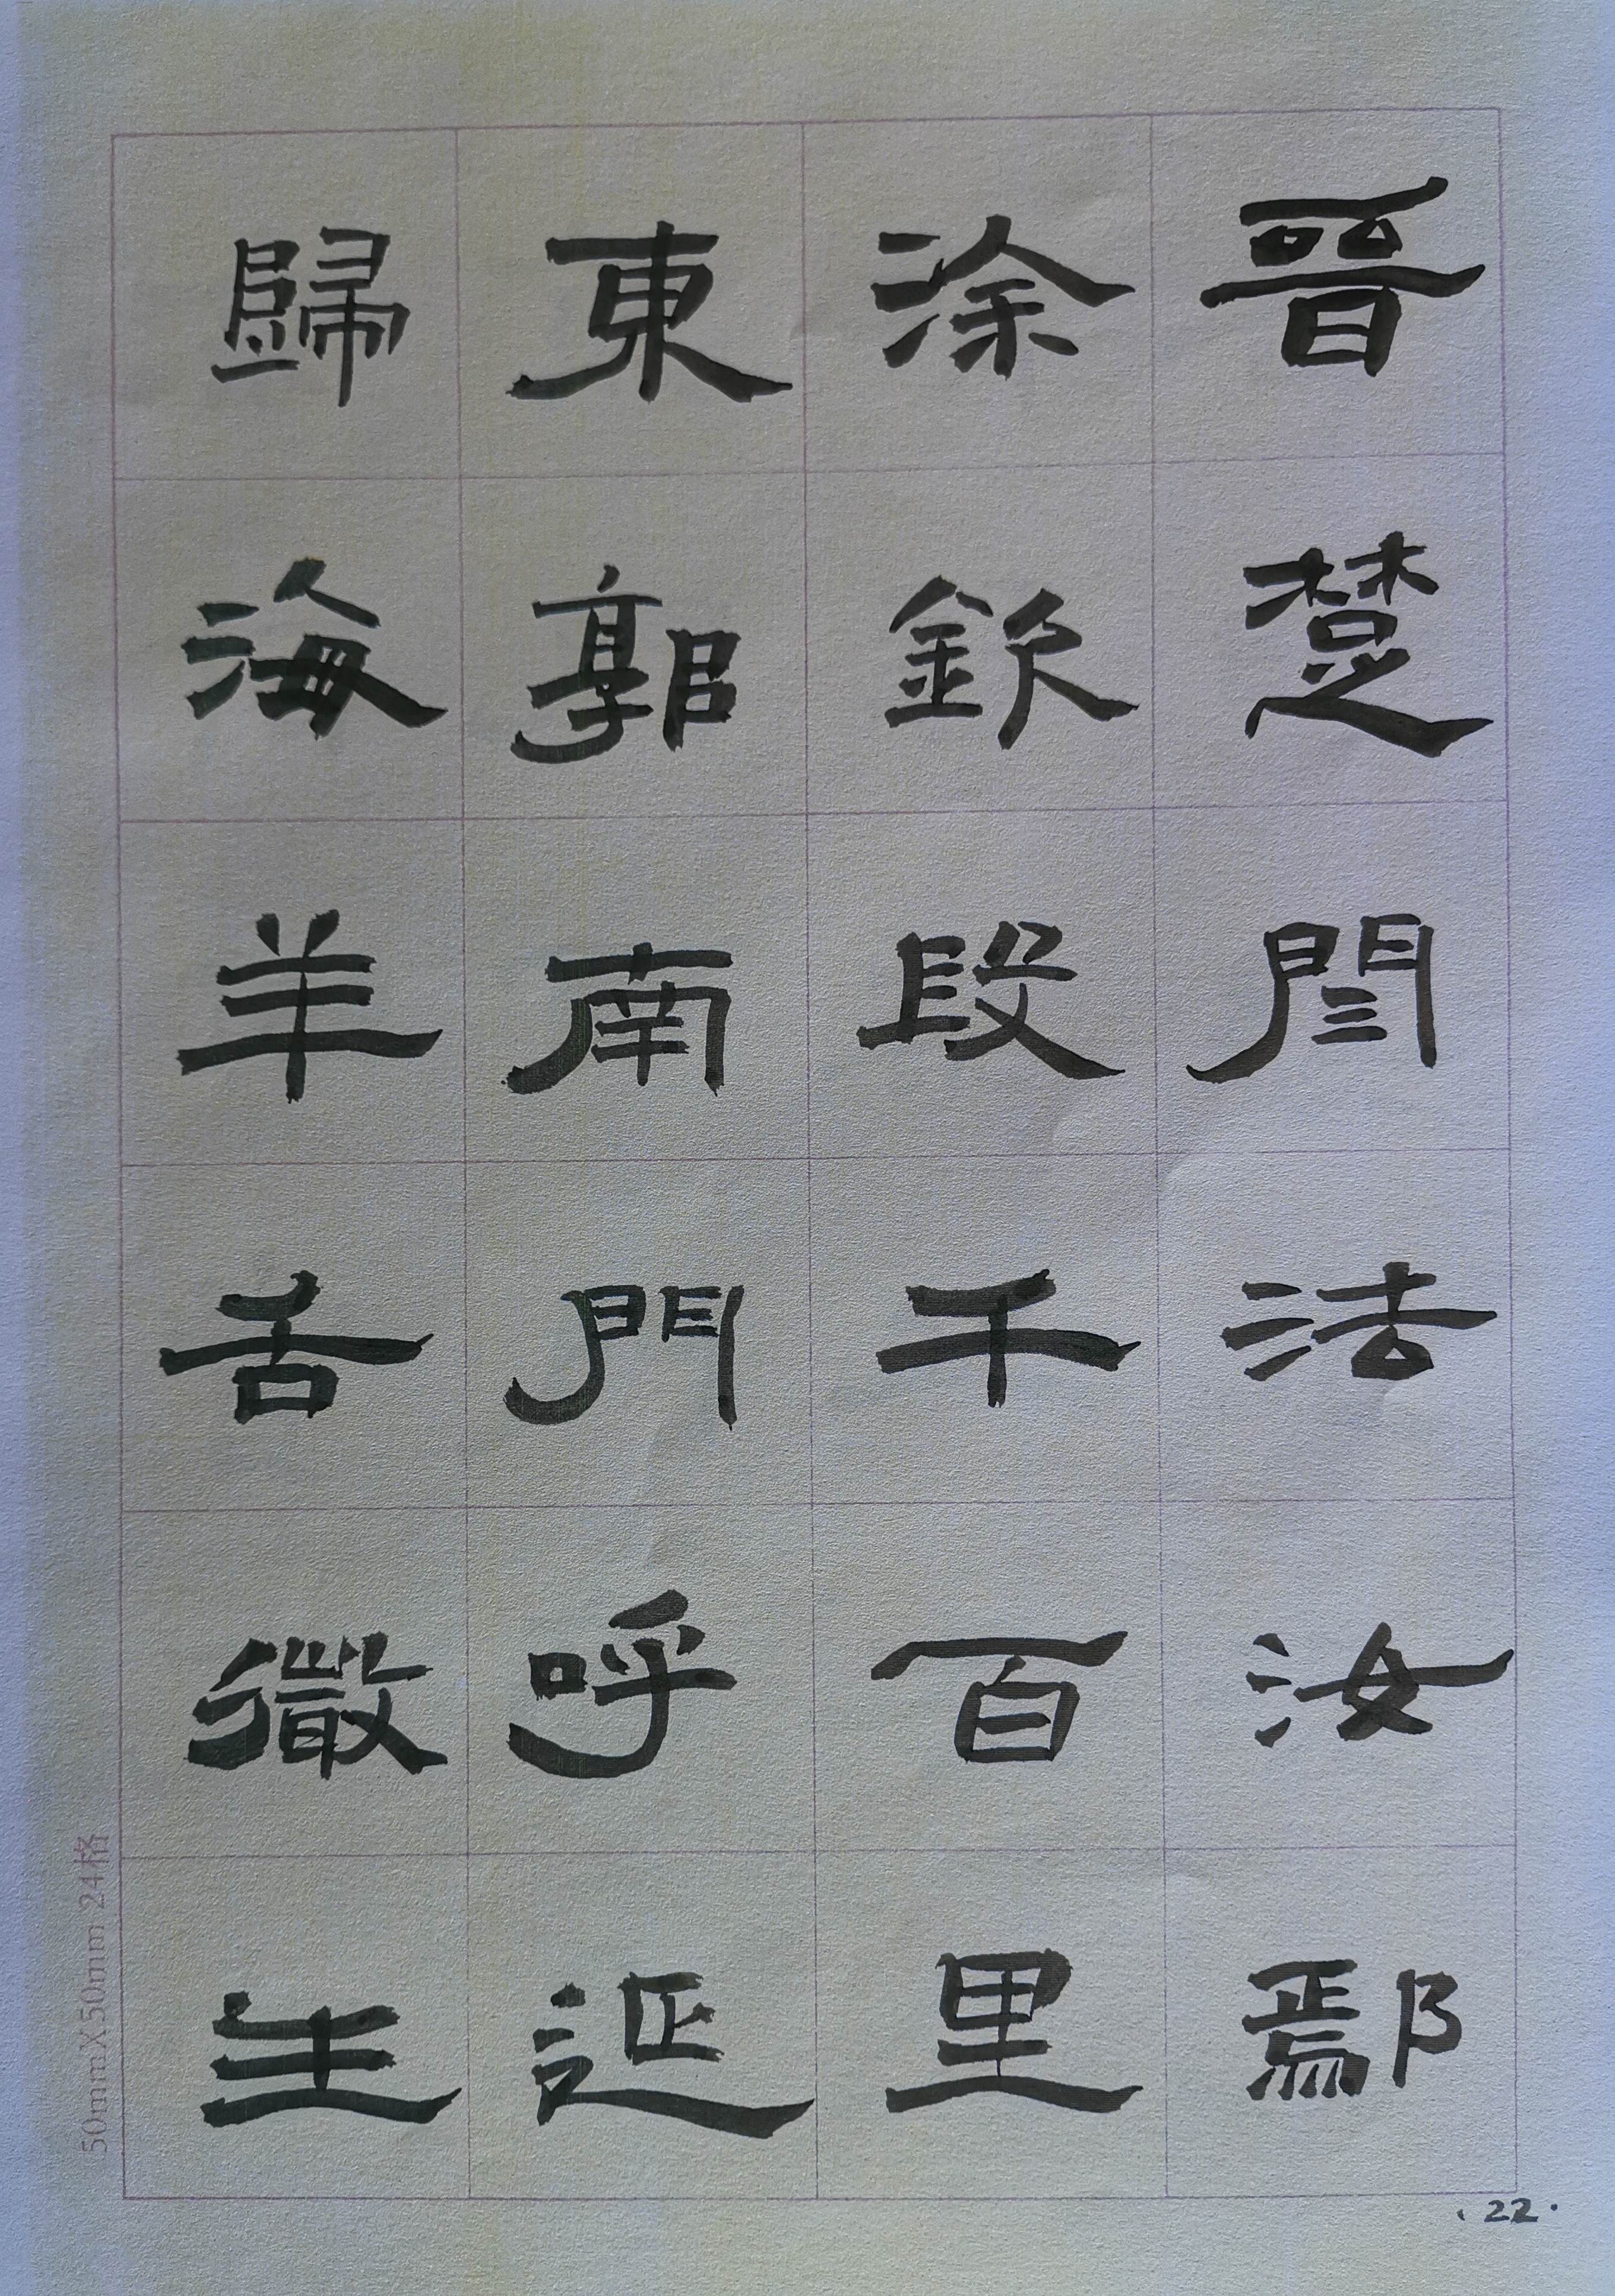 晉楚閆法汝鄢
涂欽段干百里
東郭南門呼延
歸海羊舌微生
50mmX50mm 24格
·22·